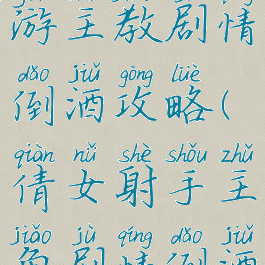 游主教剧情
dǎo jiǔ gōng lüè
倒酒攻略(
qiàn nǚ shè shǒu zhǔ
倩女射手主
jiǎo jù qíng dǎo jiǔ
角剧情倒酒